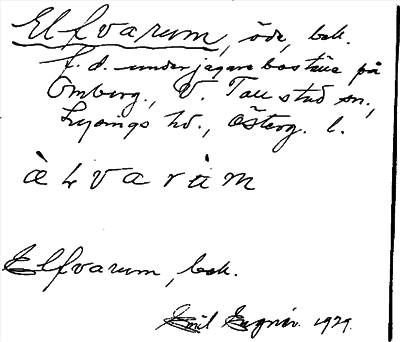 Elfvarum, öde, bek.
f. d. underjägareboställe på
Omberg, V. Tollstad sn.,
Lysings hd., Österg. l.
à L v a r ù m
Elfvarum, bek.
Emil 1929.